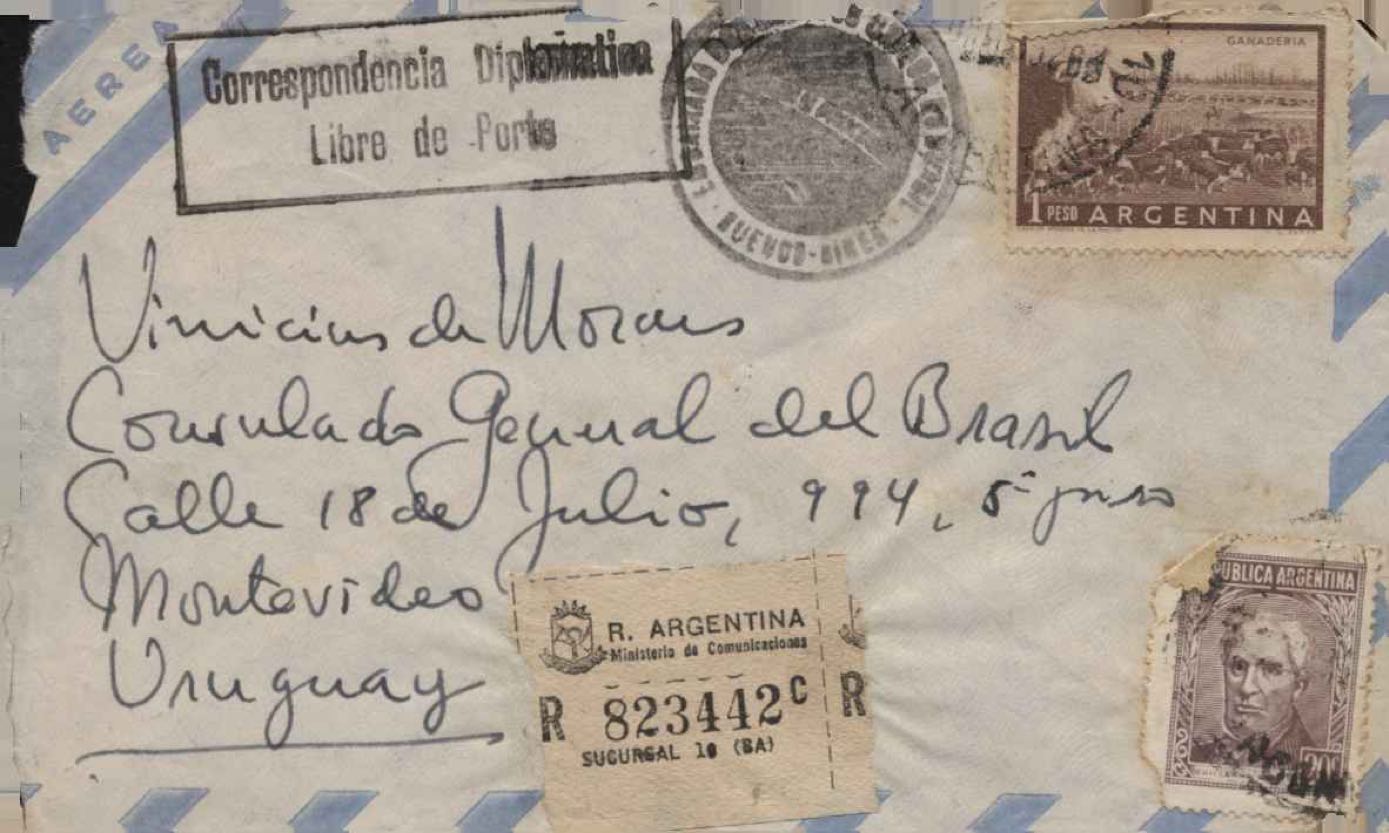 AEREA
Correspondencia Diplomatica
Libre de Porte
EMBAJADA DE
BUENOS-AIRES
GANADERIA
1 PESO ARGENTINA
Vinicius de Moraes
Consulado General del Brasil
Calle 18 de Julio, 994, 5º piso
Montevideo
Uruguay
R. ARGENTINA
Ministerio de Comunicaciones
R 823442 C R
SUCURSAL 10 (BA)
UBLICA ARGENTINA
20